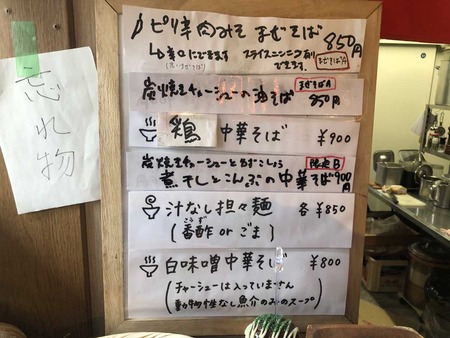 忘れ物
ピリ辛肉みそまぜそば 850円
辛口にできます
できます。
まぜそばA
炭焼きチャーシューの油そば 850円
まぜそばA
鶏 中華そば ¥900
炭焼きチャーシューと
限定B
煮干しとこんぶの中華そば 900円
汁なし担々麺 各¥850
(香酢 or ごま)
こうず
白味噌中華そば ¥800
(チャーシューは入っていません
動物性なし魚介のみのスープ)